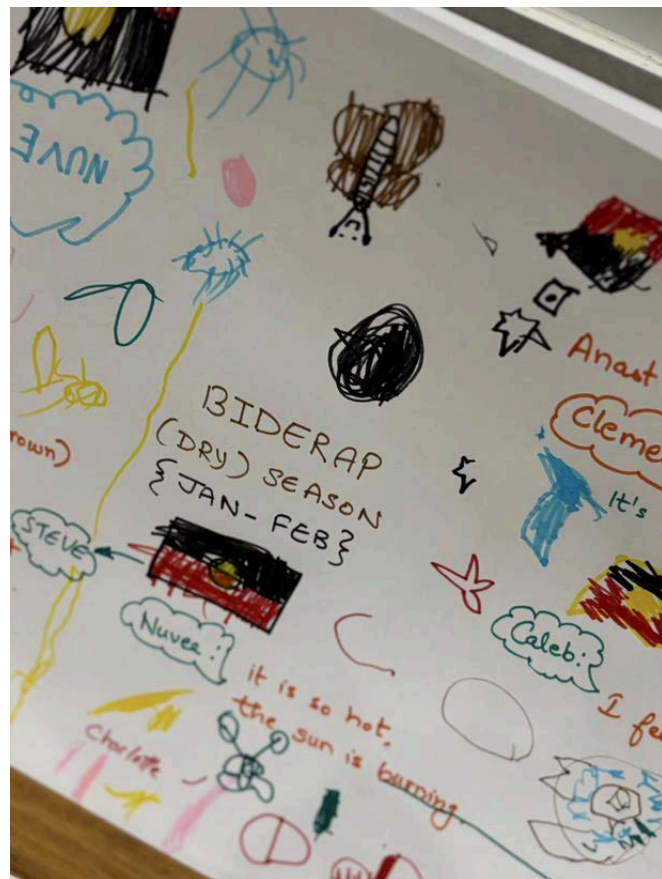 NUVE
Anast
Cleme
BIDERAP
(DRY) SEASON
{JAN-FEB}
rown)
It's
STEVE
Nuvee:
Caleb:
it is so hot.
the sun is burning.
I fe
Charlotte